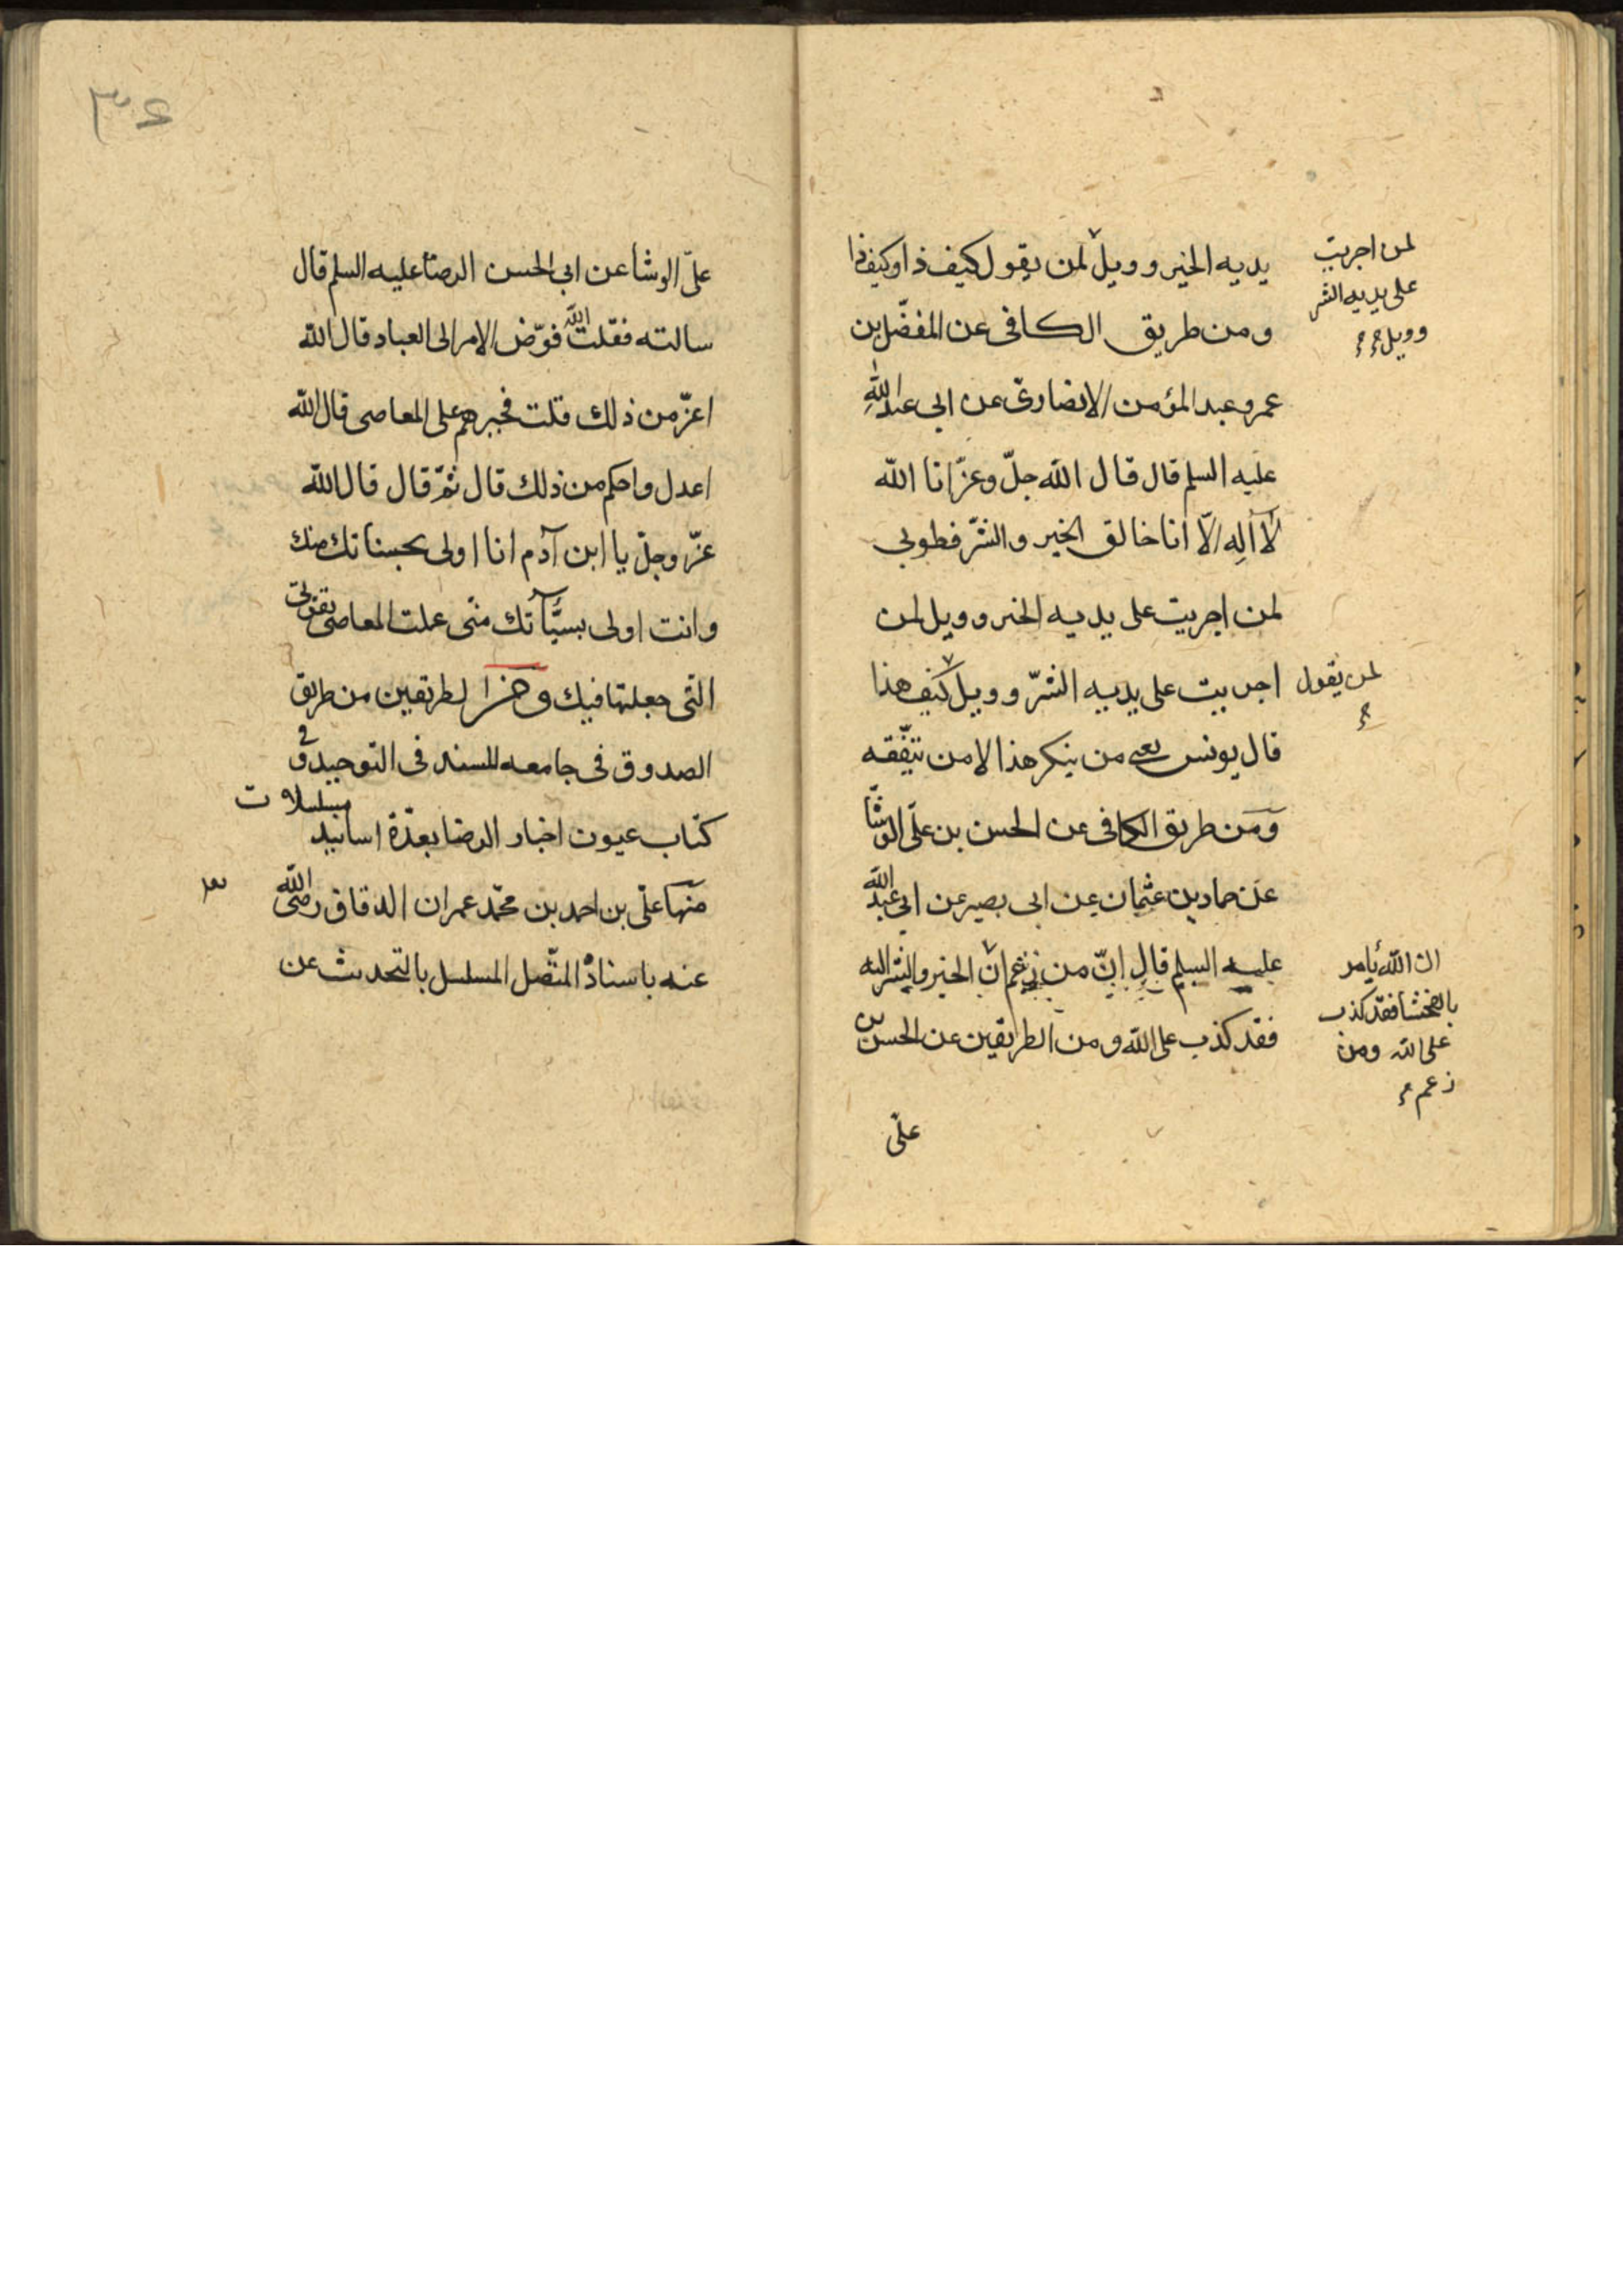 يديه الخير وويل لمن يقول كيف ذا وكيف ذا
ومن طريق الكافى عن المفضّل بن
عمر وعبد المؤمن الانصارىّ عن ابى عبد اللّه
عليه السلم قال قال اللّه جلّ وعزّ انا اللّه
لآ اله الّا انا خالق الخير والشرّ فطوبى
لمن اجريت على يديه الخير وويل لمن
اجريت على يديه الشرّ وويل كيف هذا
قال يونس يعنى من ينكر هذا الامر بتفقّه
ومن طريق الكافى عن الحسن بن علىّ الوشّا
عن حماد بن عثمان عن ابى بصير عن ابى عبد اللّه
عليه السلم قال انّ من زعم انّ الخير والشر اليه
فقد كذب على اللّه ومن الطريقين عن الحسن بن
علىّ
لمن اجريت
على يديه الشر
وويل
لمن يقول
ان اللّه يأمر
بالفحشا فقد كذب
على اللّه ومن
زعم
علىّ الوشا عن ابى الحسن الرضا عليه السلم قال
سالته فقلت اللّه فوّض الامر الى العباد قال اللّه
اعزّ من ذلك قلت فجبرهم على المعاصى قال اللّه
اعدل واحكم من ذلك قال ثمّ قال قال اللّه
عزّ وجلّ يا ابن آدم انا اولى بحسناتك منك
وانت اولى بسيّآتك منّى عملت المعاصى بقوّتى
التى جعلتها فيك وهذا لطريقين من طريق
الصدوق فى جامعه المسند فى التوحيد وفى
كتاب عيون اخبار الرضا بعدّة اسانيد مسلسلات
منها علىّ بن احمد بن محمّد عمران الدقاق رضى اللّه
عنه باسناده المتّصل المسلسل بالتحديث عن